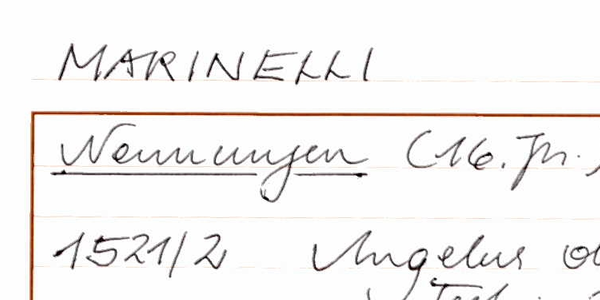 MARINELLI
Nennungen (16. Jh.)
1521/2 Angelus